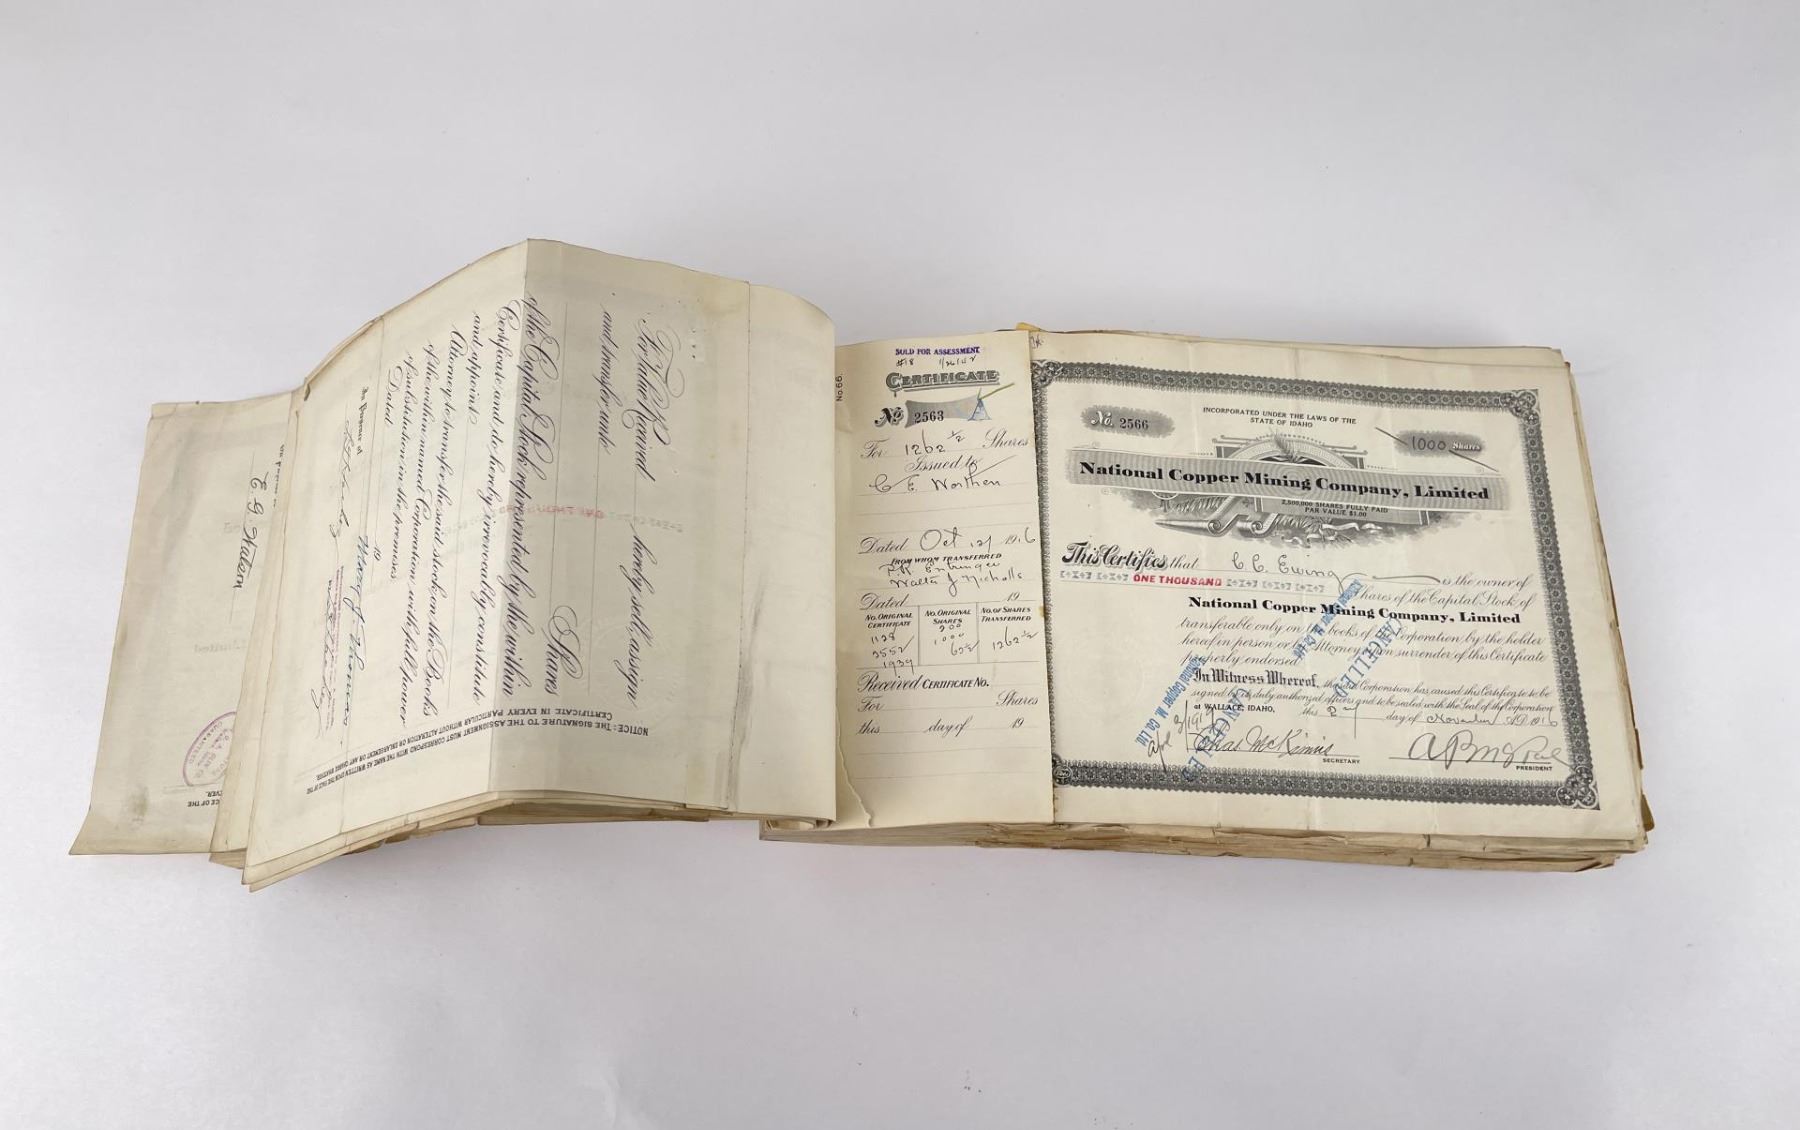 E. G. Watson
For Value Received hereby sell, assign
and transfer unto
Shares
of the Capital Stock represented by the within
Certificate and do hereby irrevocably constitute
and appoint
Attorney to transfer the said stock on the Books
of the within named Corporation with full power
of substitution in the premises.
Dated 19
In Presence of
Mary J. Thomas
NOTICE: THE SIGNATURE TO THE ASSIGNMENT MUST CORRESPOND WITH THE NAME AS WRITTEN UPON THE FACE OF THE
CERTIFICATE IN EVERY PARTICULAR WITHOUT ALTERATION OR ENLARGEMENT OR ANY CHANGE WHATEVER.
No. 66.
SOLD FOR ASSESSMENT
#18
CERTIFICATE
No. 2563
For 1262 1/2 Shares
Issued to
C E Worthen
Dated Oct 12 1916
FROM WHOM TRANSFERRED
Walter J Nicholls
Dated 19
NO. ORIGINAL CERTIFICATE NO. ORIGINAL SHARES NO. OF SHARES TRANSFERRED
1128 200
2552 1000 1262 1/2
1939 62 1/2
Received CERTIFICATE NO.
For Shares
this day of 19
No. 2566
INCORPORATED UNDER THE LAWS OF THE
STATE OF IDAHO
1000 Shares
National Copper Mining Company, Limited
2,500,000 SHARES FULLY PAID
PAR VALUE $1.00
This Certifies that C. C. Ewing is the owner of
ONE THOUSAND Shares of the Capital Stock of
National Copper Mining Company, Limited
transferable only on the books of the Corporation by the holder
hereof in person or by Attorney upon surrender of this Certificate
properly endorsed.
In Witness Whereof, the said Corporation has caused this Certificate to be
signed by its duly authorized officers and to be sealed with the Seal of the Corporation
at WALLACE, IDAHO, this 2 day of November A.D. 1916
CANCELLED
National Copper M. Co. Ltd.
CANCELLED
National Copper M. Co. Ltd.
Chas McKinnis
SECRETARY
PRESIDENT